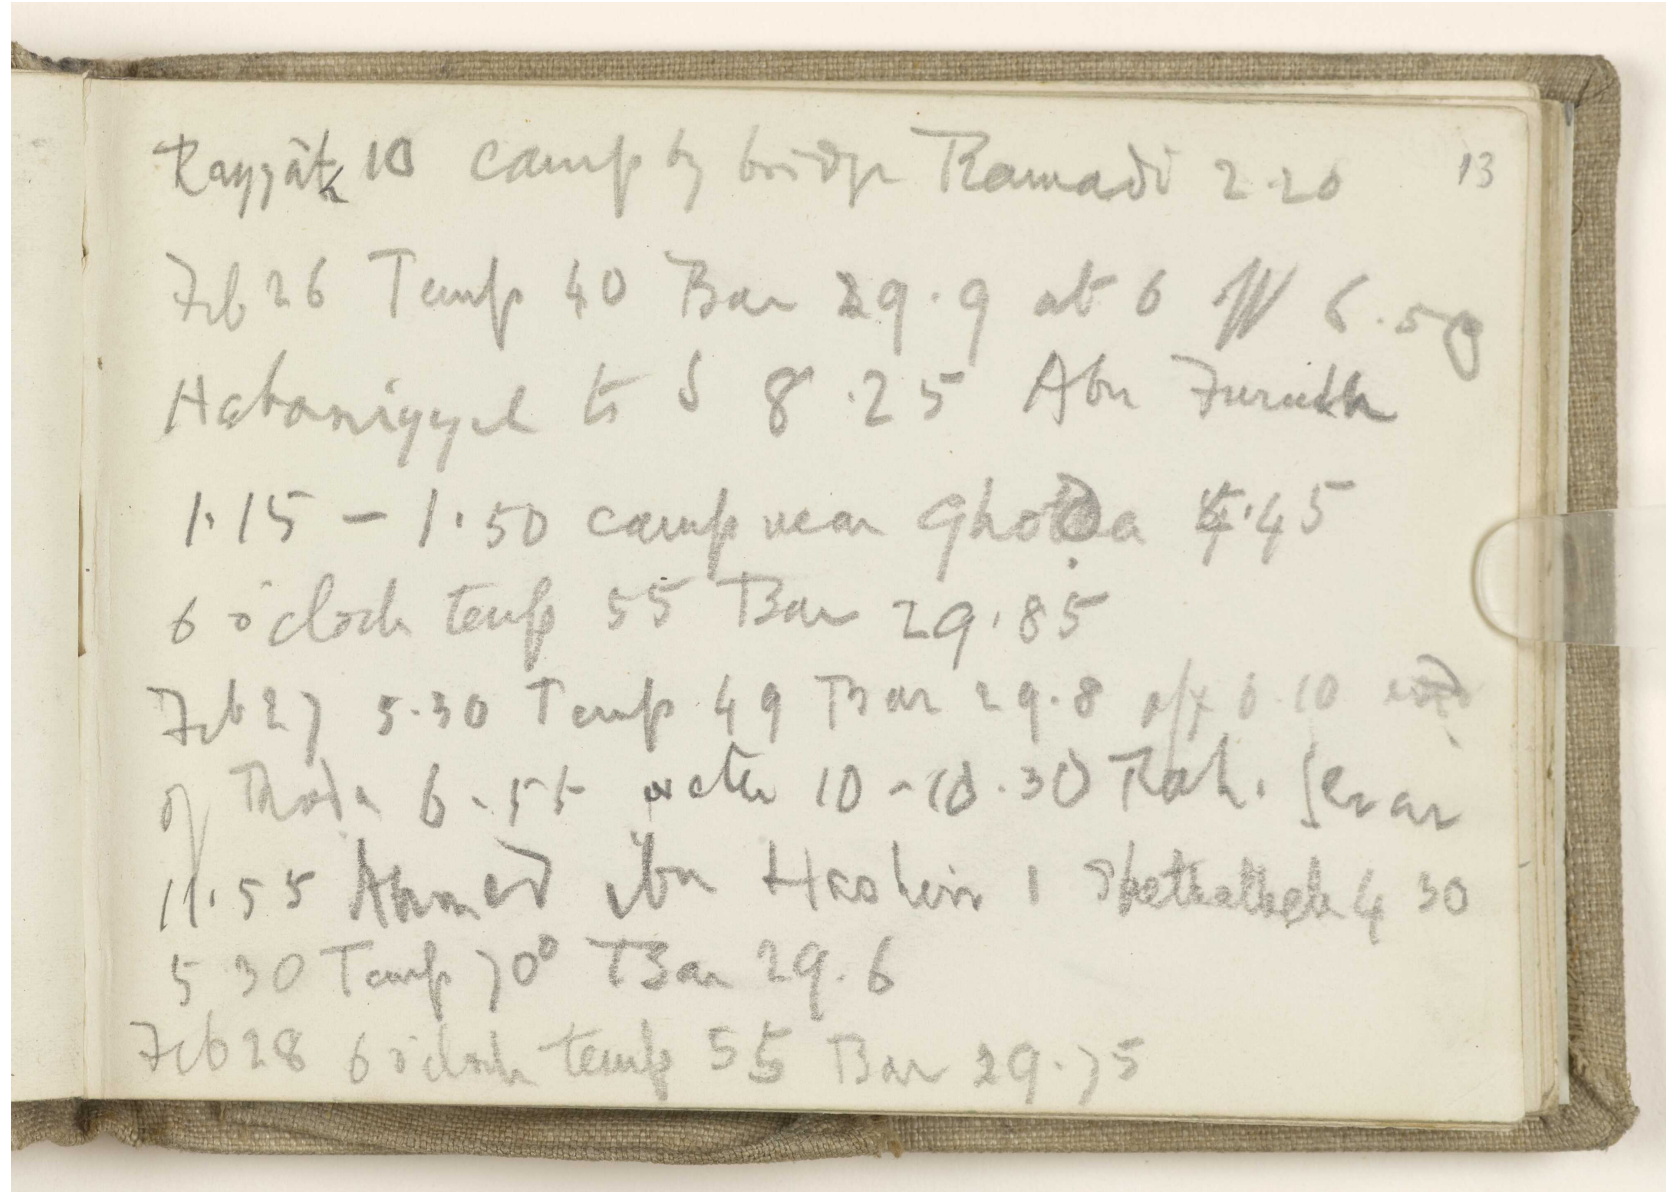 Rayyât 10 camp by bridge Ramadi 2.20
13
Feb 26 Temp 40 Bar 29.9 at 6 off 6.50
Habaniyyeh to S 8.25 Abu Furukh
1.15 – 1.50 camp near Ghoda 4.45
6 o'clock temp 55 Bar 29.85
Feb 27 5.30 Temp 49 Bar 29.8 off 6.10
of Thoda 6.55 water 10 - 10.30 Rah.
11.55 Ahmed ibn Hashim 1 Shethatheh 4 30
5 30 Temp 70° Bar 29.6
Feb 28 6 o'clock temp 55 Bar 29.75